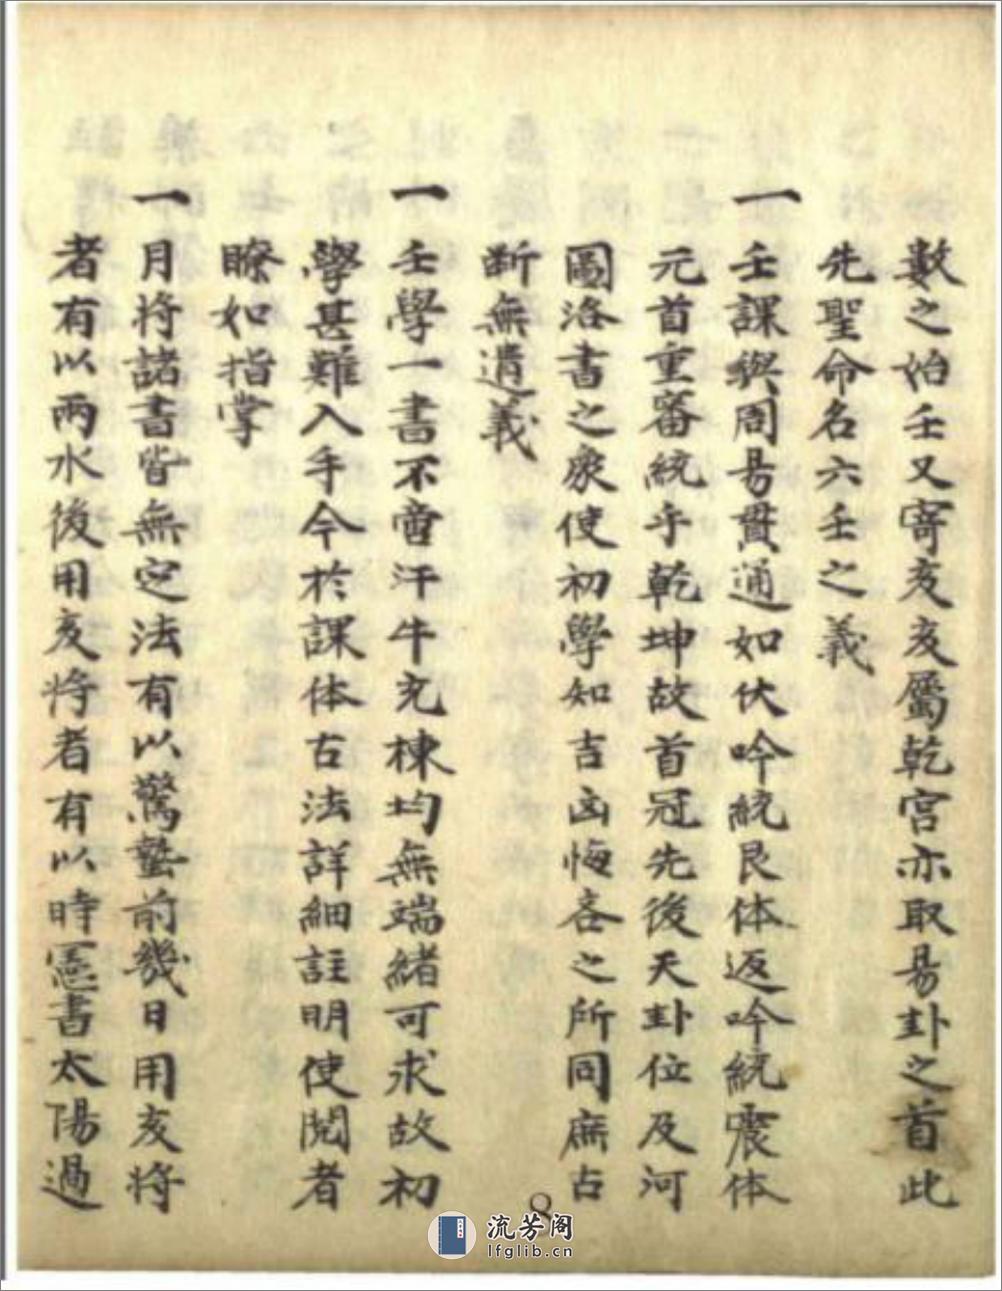 數之始壬又寄亥亥屬乾宫亦取易卦之首此
先聖命名六壬之義
一 壬課與周易貫通如伏吟統艮体返吟統震体
元首重審統乎乾坤故首冠先後天卦位及河
圖洛書之象使初學知吉凶悔吝之所同庶占
断無遺義
一 壬學一書不啻汗牛充棟均無端緒可求故初
學甚難入手今於課体古法詳細註明使閱者
瞭如指掌
一 月将諸書皆無定法有以驚蟄前幾日用亥将
者有以雨水後用亥将者有以時憲書太陽過
8
流芳阁
lfglib.cn